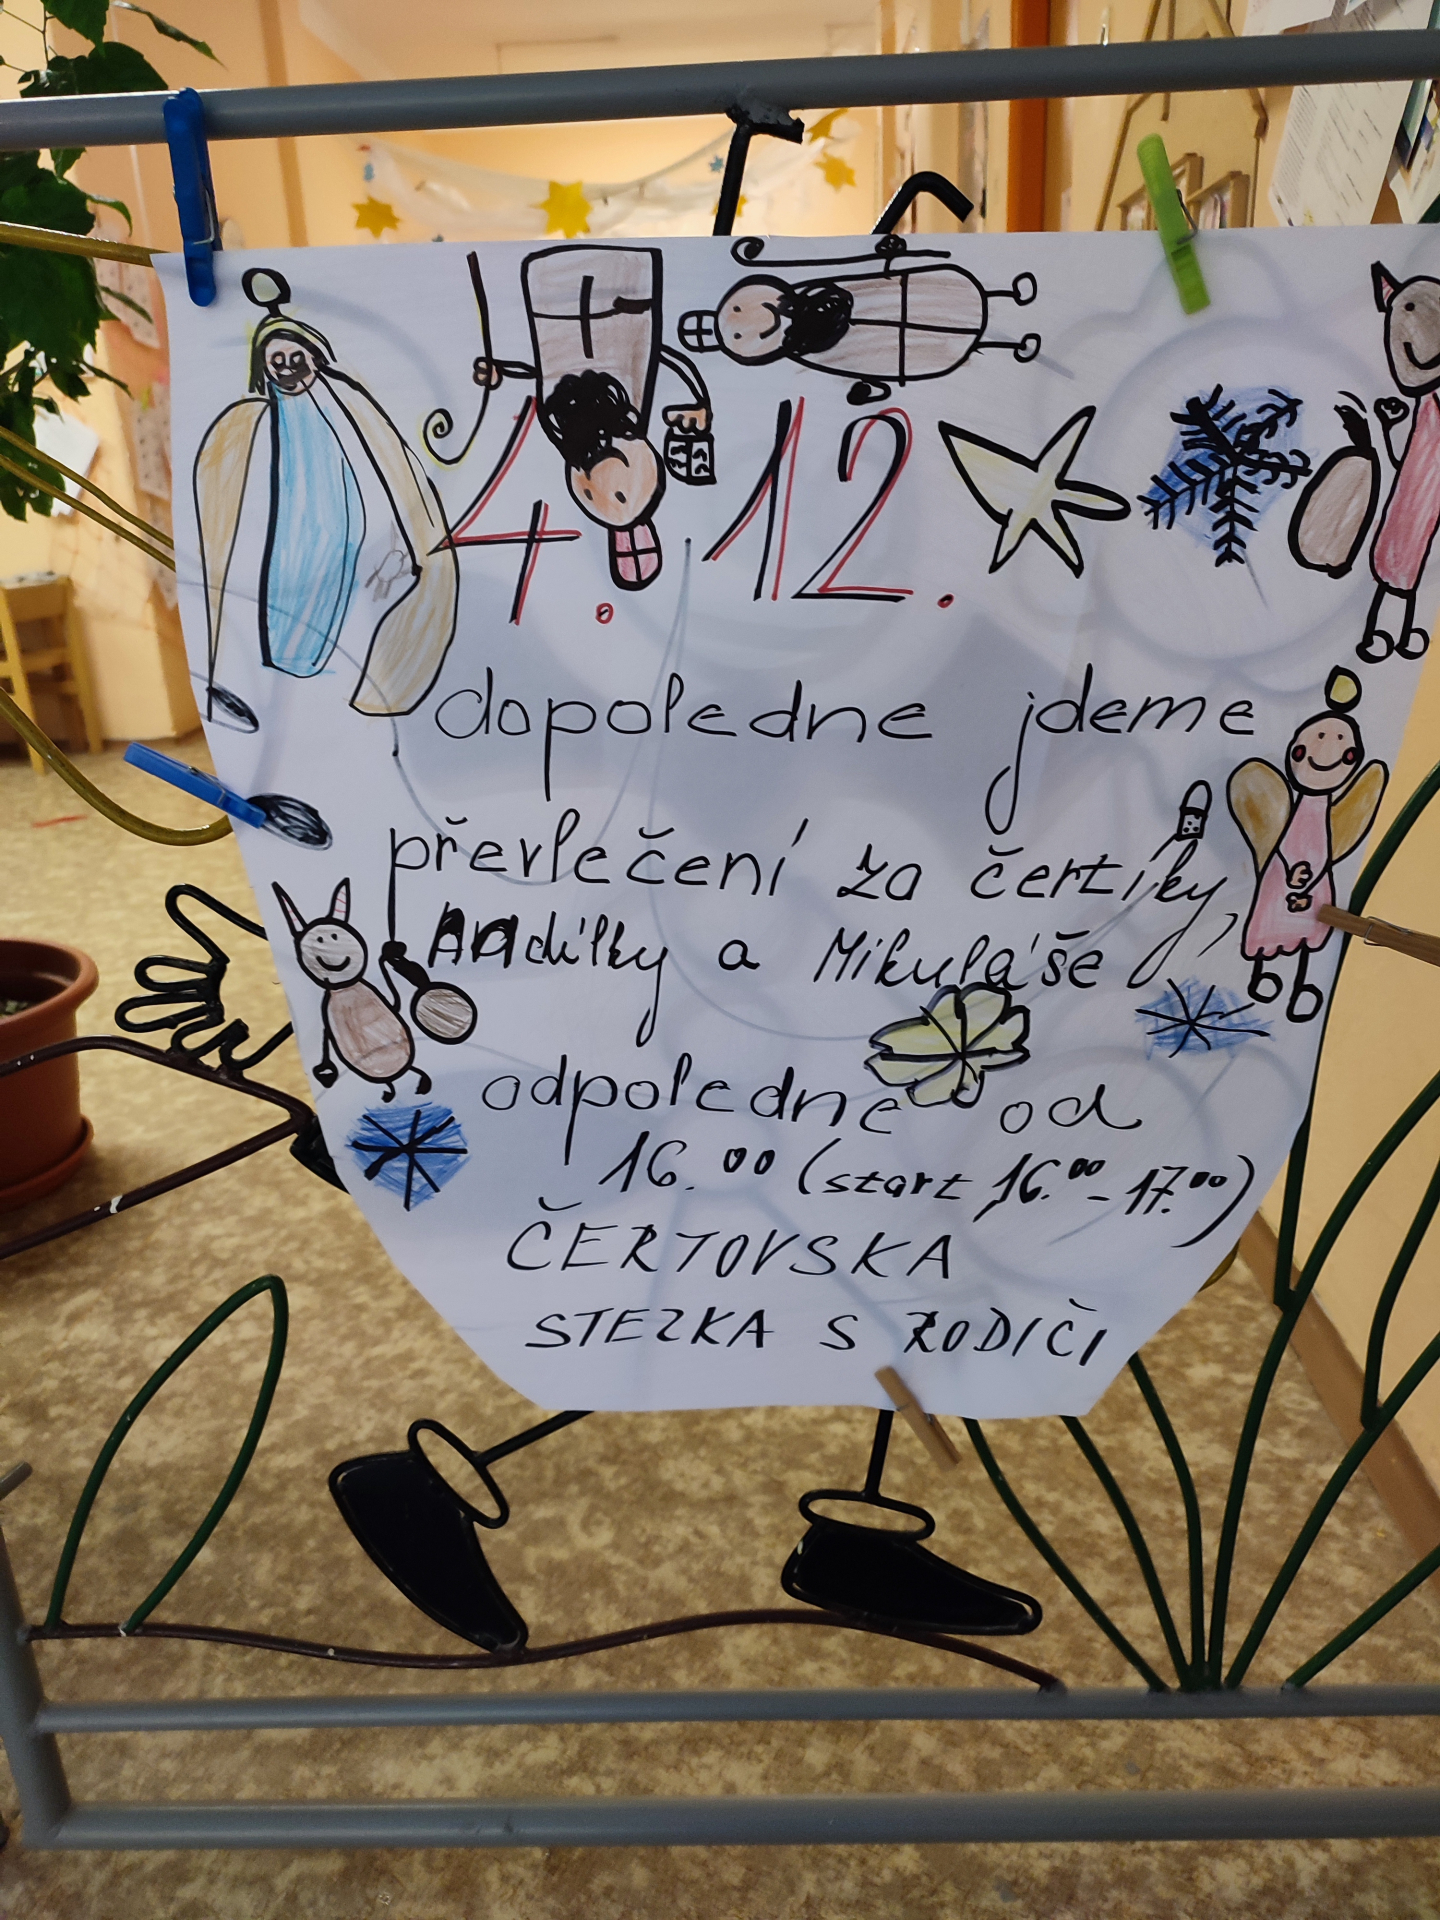 4. 12.
dopoledne jdeme
převlečení za čertíky,
Andílky a Mikuláše
odpoledne od
16.00 (start 16.00 - 17.00)
ČERTOVSKA
STEZKA S RODIČI